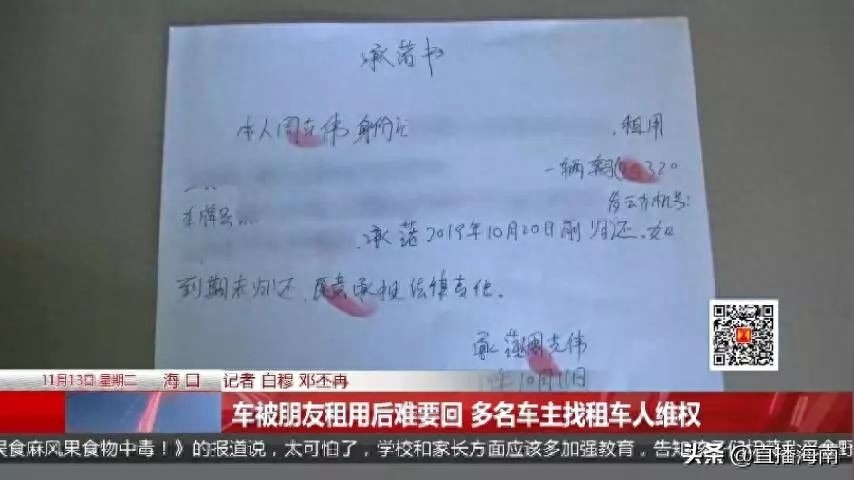 承诺书
本人周克伟身份证
租用
一辆
320
车牌号
发动机号:
承诺2019年10月20日前归还.如
到期未归还,愿意承担法律责任。
周克伟
年10月11日
11月13日 星期二 海口 记者 白穆 邓丕冉
车被朋友租用后难要回 多名车主找租车人维权
食麻风果食物中毒!》的报道说,太可怕了,学校和家长方面应该多加强教育,告知孩子们
头条 @直播海南